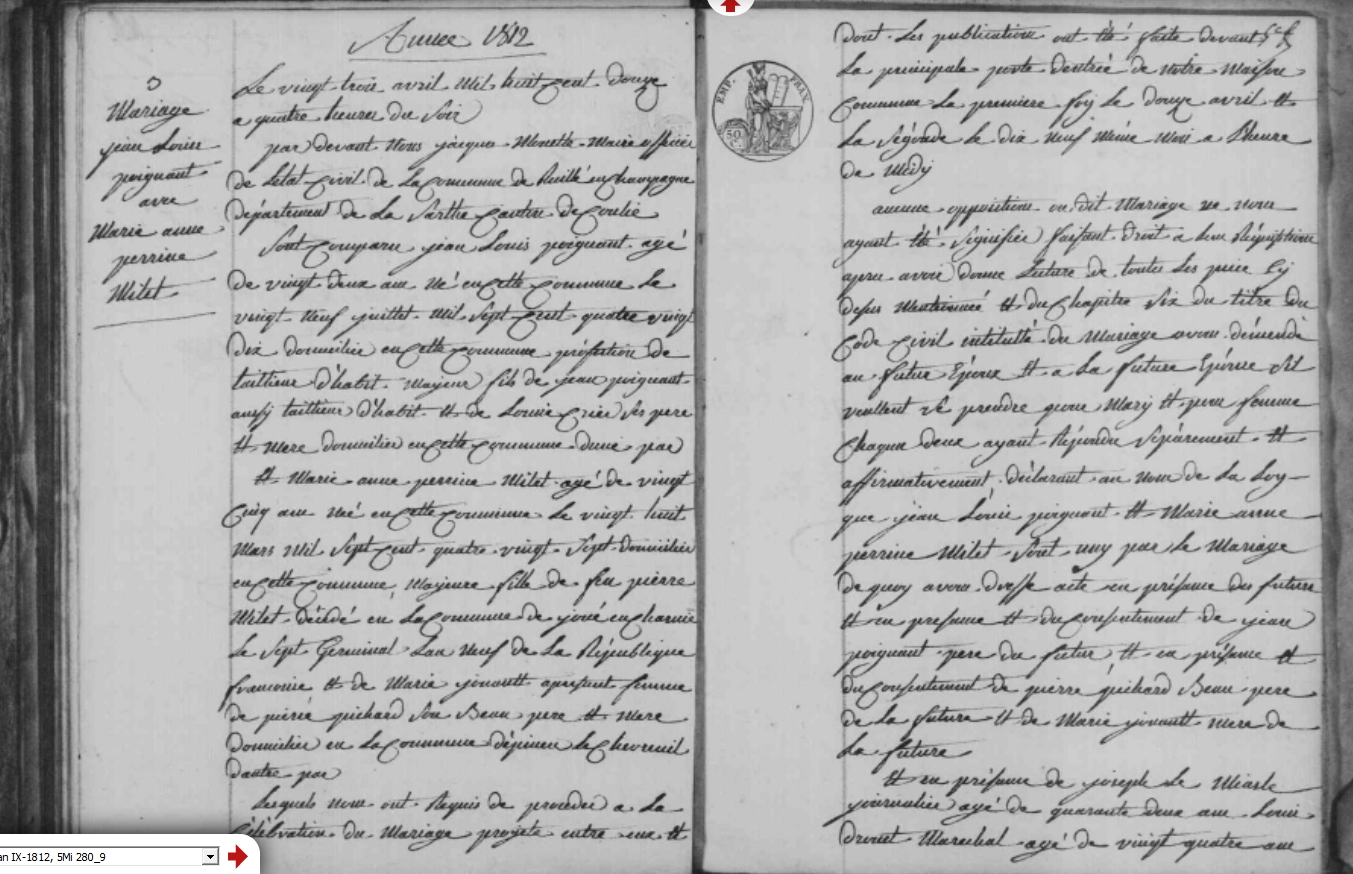 Année 1812
3
Mariage
jean Louis
poignant
avec
Marie anne
perrine
Milet
Le vingt trois avril Mil huit Cent douze
a quatre heures du Soir
par devant Nous jacques Monette Maire officier
de Letat Civil de La Commune de Ruillé en Champagne
département de La Sarthe Canton de Conlie
Sont Comparu jean Louis poignant agé
de vingt deux ans Né en Cette Commune Le
vingt Neuf juillet Mil Sept Cent quatre vingt
dix domicilié en Cette Commune proféssion de
taillieur d'habit Majeur fils de jean poignant
aussy taillieur d'habit et de Louise Crier Ses pere
et Mere domicilier en Cette Commune dune par
Et Marie anne perrine Milet agé de vingt
Cinq ans Né en Cette Commune Le vingt huit
Mars Mil Sept Cent quatre vingt Sept domicilier
en Cette Commune, Majeure fille de feu pierre
Milet décédé en La Commune de joué en Charnie
Le Sept Germinal Lan Neuf de La République
francoise et de Marie apresent femme
de pierre pichard Son Beau pere et Mere
domicilier en La Commune dépineu Le Chevreuil
dautre par
Lesquels nous ont Requis de proceder a La
Célébration du Mariage projeté entre eux et
dont Les publication ont été faite devant
La principale porte d'entrée de notre Maison
Commune La premiere foy Le douze avril et
La Segonde le dix neuf même Mois a Lheure
de Midy
aucune opposition audit Mariage ne nous
ayant été Signifiée faisant droit a leur Réquisition
apres avoir donné Lecture de toutes Les piece Cy
desus Mentionnée et du Chapitre Six du titre du
Code Civil intitullé du Mariage avons démendé
au futur Epoux et a La future Epouse Sil
veullent Se prendre pour Mary et pour femme
Chaqun deux ayant Répondu Séparement et
affirmativement déclarant au Nom de La Loy
que jean Louis poignant et Marie anne
perrine Milet Sont uny par Le Mariage
de quoy avons dressé acte en présance des futurs
et en presance et du Consentement de jean
poignant pere du futur et en présance et
du Consentement de pierre pichard Beau pere
de La future et de Marie mere de
La future
Et en présance de joseph Le Miasle
journalier agé de quarante deux ans Louis
drouet Marechal agé de vingt quatre ans
EMP. FRAN.
50 C.
an IX-1812, 5Mi 280_9